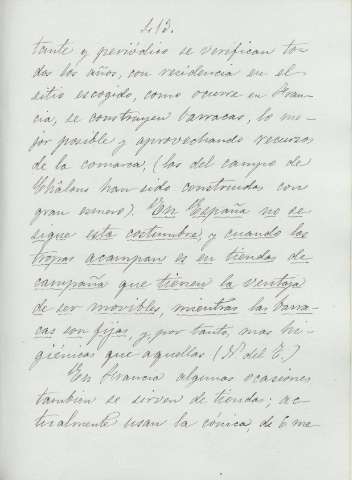 413.
tante y periódico se verifican to-
dos los años, con residencia en el
sitio escogido, como ocurre en Fran-
cia, se construyen barracas, lo me-
jor posible y aprovechando recursos
de la comarca, (las del campo de
Châlons han sido construidas con
gran esmero). En España no se
sigue esta costumbre, y cuando las
tropas acampan es en tiendas de
campaña que tienen la ventaja
de ser movibles, mientras las barra-
cas son fijas y, por tanto, mas hi-
giénicas que aquellas (N. del T.)
En Francia algunas ocasiones
tambien se sirven de tiendas; ac-
tualmente usan la cónica, de 6 me-